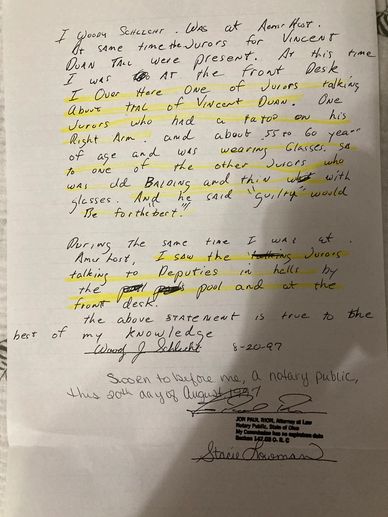 I Woody Schlecht. Was at Amer Host.
At same time the Jurors for Vincent
Duan Tall were present. At this time
I was At the Front Desk
I Over Here One of Jurors talking
About trial of Vincent Duan. One
Jurors who had a tatoo on his
Right Arm. and about 55 to 60 years
of age and was wearing Glasses. Sa
to one of the other Jurors who
was old Balding and thin with
glasses. And he said "guilty" would
Be for the best."
During the same time I was at
Amer host, I saw the Jurors
talking to Deputies in halls by
the pool and at the
front desk.
the above STATEMENT is true to the
best of my knowledge
Woody J Schlecht 8-20-97
Sworn to before me, a notary public,
this 20th day of August 1997
JON PAUL RION, Attorney at Law
Notary Public, State of Ohio
My Commission has no expiration date
Section 147.03 O. R. C
Stacie Lowman